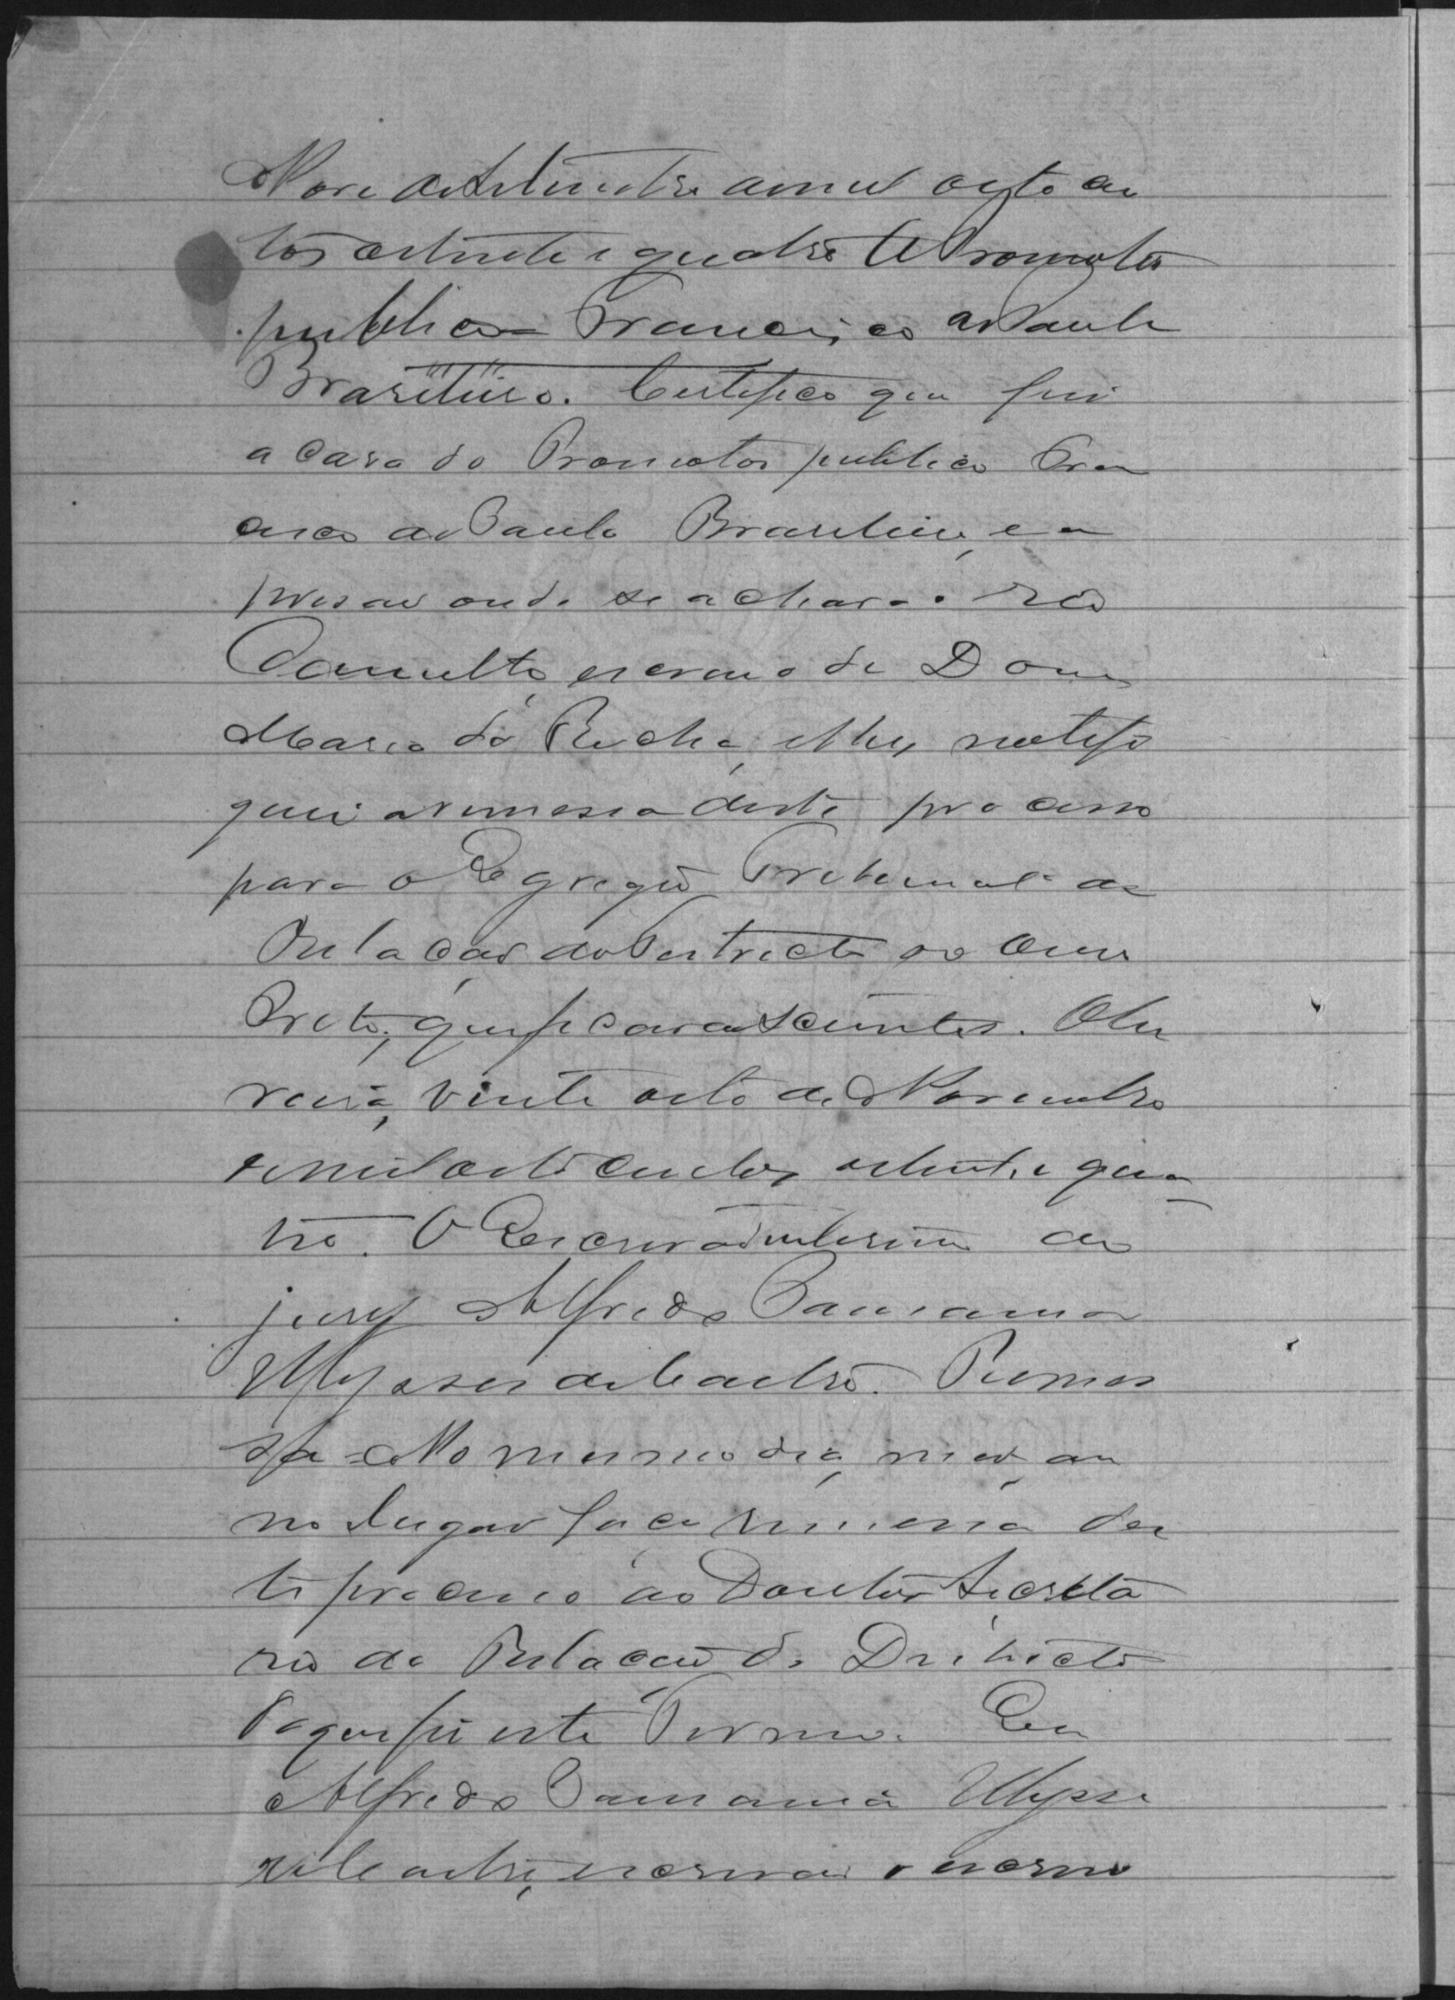 Nove de Setembro de mil oito cen
tos oitenta e quatro O Promotor
publico Francisco de Paula
Brasileiro. Certifico que fui
a casa do Promotor publico Fran
cisco de Paula Brasileiro, e a
prisão onde se achava o réo
escravo de Dona
Maria da Rocha, e lhes notifi
quei a remessa deste processo
para o Egregio Tribunal da
Relação do Districto de Ouro
Preto, que ficarão scientes.
vinte oito de Novembro
de mil oito centos oitenta e qua
tro. O Escrivão interino do
jury Alfredo
Ulysses de Castro. Remes
sa = No mesmo dia, mez, an
no lugar faço remessa des
te processo ao Doutor Secreta
rio da Relação do Districto
do que fiz este Termo. Eu
Alfredo Ulysse
s de Castro, escrivão o escrevi